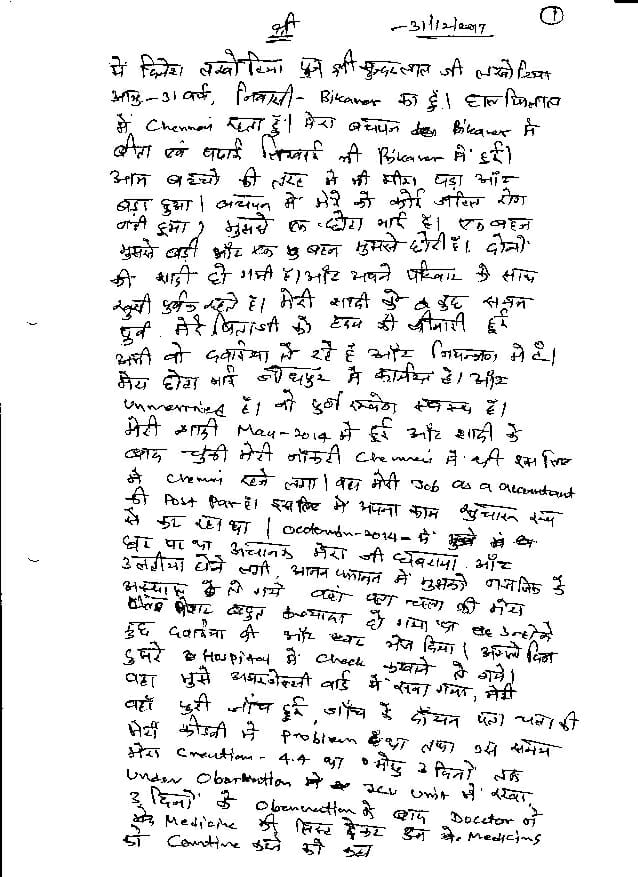 श्री
31/12/2017
1
मैं दिनेश लखोटिया पुत्र श्री सुन्दरलाल जी लखोटिया
आयु-31 वर्ष, निवासी- Bikaner का हुँ। हाल फिलहाल
में Chennai रहता हुँ। मेरा बचपन Bikaner में
बीता एवं पढाई लिखाई भी Bikaner में हुई।
आम बच्चो की तरह मैं भी पढा और
बड़ा हुआ। बचपन में मेरे को कोई जटिल रोग
नही हुआ, मुझसे एक छोटा भाई है। एक बहन
मुझसे बड़ी और एक बहन मुझसे छोटी है। दोनो
की शादी हो गयी है। और अपने परिवार के साथ
खुशी पुर्वक रहते है। मेरी शादी के कुछ समय
पुर्व मेरे पिताजी को हृदय की बीमारी हुई
अभी वो दवाईया ले रहे है और नियन्त्रण में है।
मेरा छोटा भाई जोधपुर में कार्यरत है। और
Unmerried है। वो पुर्ण स्वस्थ है।
मेरी शादी May-2014 में हुई और शादी के
बाद चुकी मेरी नौकरी Chennai में थी इस लिए
में Chennai रहने लगा। वहा मेरी Job as a accountant
की Post पर है। इस लिए मे अपना काम सुचारू रूप
से कर रहा था। October-2014 में
घर पर था अचानक मेरा जी घबराया और
उलटीया होने लगी, आनन फानन में मुझको नजदिक के
अस्पताल ले गये वहां पता चला की मेरा
बहुत ज्यादा हो गया था उन्होने
कुछ दवाईया दी और घर भेज दिया। अगले दिन
दुसरे Hospital में Check करवाने ले गये।
वहा मुझे वार्ड में रखा गया, मेरी
वहाँ पुरी जाँच हुई, जाँच के दौरान पता चला की
मेरी कीडनी में Problem है था तथा उस समय
मेरा Creation - 4.4 था मुझे 3 दिनो तक
Under Obserbation में ICU Unit में रखा,
3 दिनो के Obserbation के बाद Docctor ने
Medicine की लिस्ट देकर उन Medicins
को Comtine करने को कहा